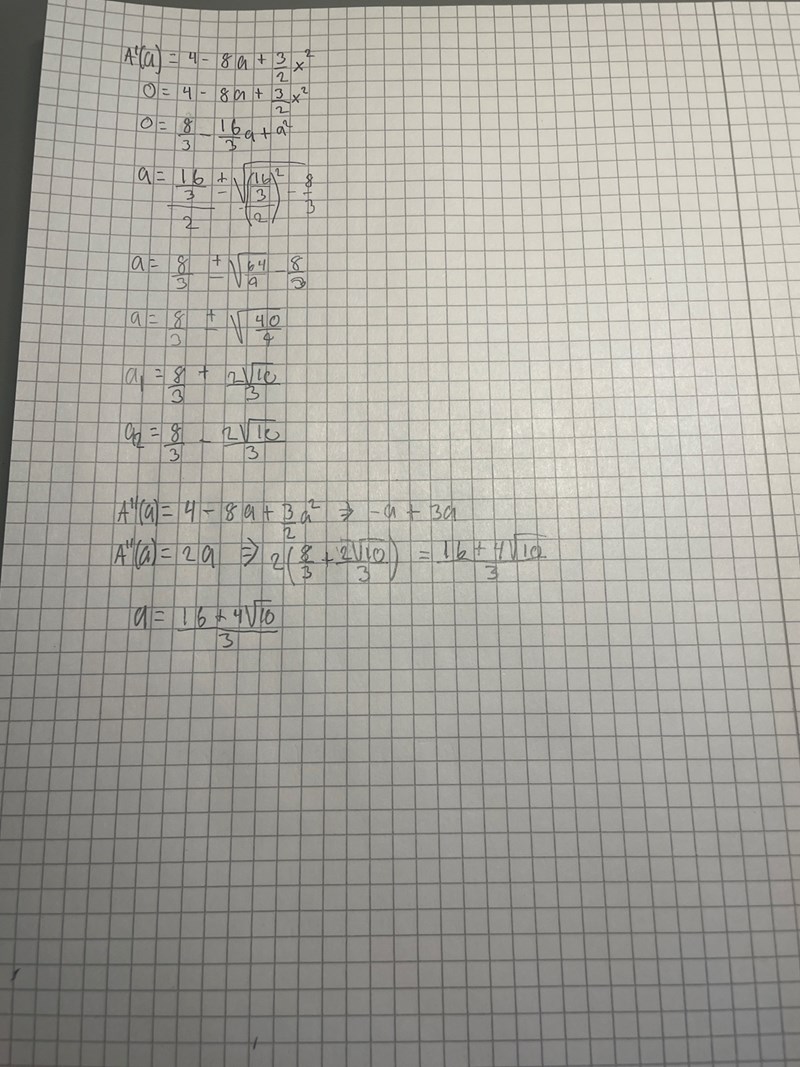 A'(a) = 4 - 8a + 3/2 x²
0 = 4 - 8a + 3/2 x²
0 = 8/3 - 16/3 a + a²
a = (16/3)/2 ± √(((16/3)/2)² - 8/3)
a = 8/3 ± √(64/9 - 8/3)
a = 8/3 ± √(40/9)
a₁ = 8/3 + 2√10/3
a₂ = 8/3 - 2√10/3
A''(a) = 4 - 8a + 3/2 a² ⇒ -a + 3a
A''(a) = 2a ⇒ 2(8/3 + 2√10/3) = (16 + 4√10)/3
a = (16 + 4√10)/3